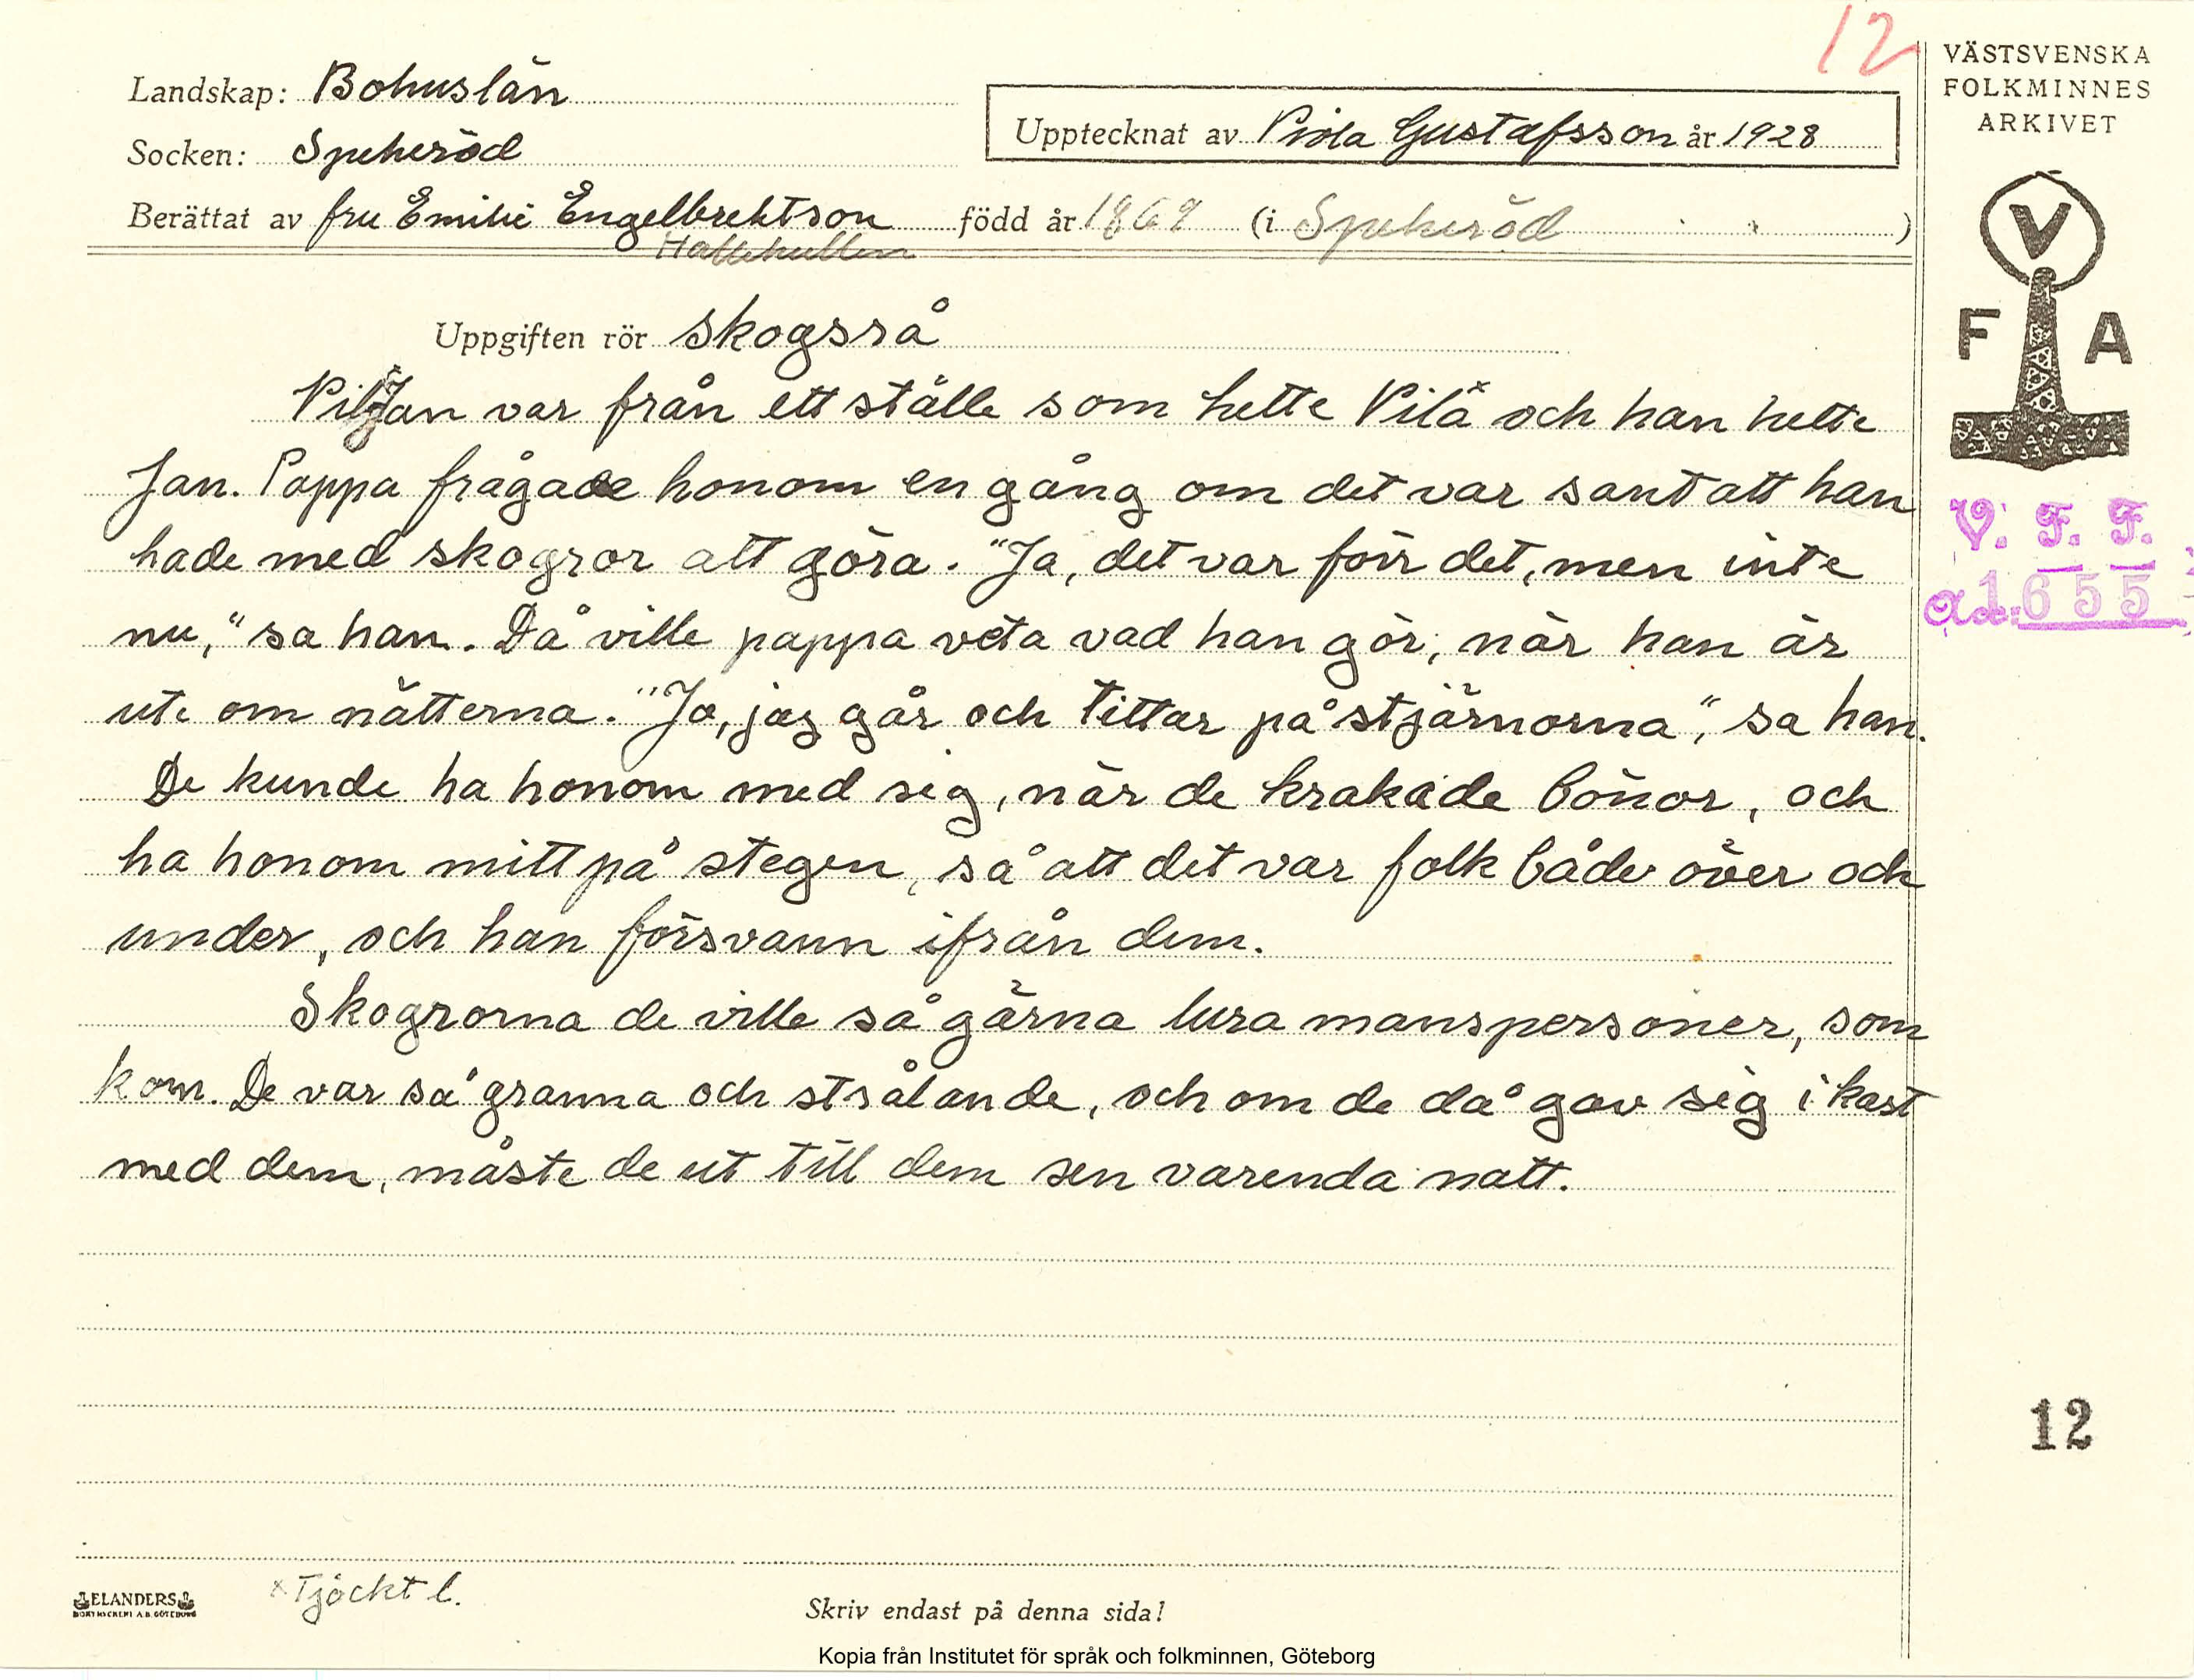 12
VÄSTSVENSKA
FOLKMINNES
ARKIVET
Landskap: Bohuslän
Upptecknat av Viola Gustafsson år 1928
Socken: Spekeröd
Berättat av fru Emilie Engelbrektson född år 1869 (i Spekeröd )
Hallekullen
V
F A
Uppgiften rör Skogsrå
Jan var från ett ställe som hette Vilaˣ och han hette
Jan. Pappa frågade honom en gång om det var sant att han
hade med skogror att göra. "Ja, det var förr det, men inte
nu," sa han. Då ville pappa veta vad han gör, när han är
ute om nätterna. "Ja, jag går och tittar på stjärnorna", sa han.
De kunde ha honom med sig, när de krakade bönor, och
ha honom mitt på stegen, så att det var folk både över och
under, och han försvann ifrån dem.
Skogrorna de ville så gärna lura manspersoner, som
kom. De var så granna och strålande, och om de då gav sig i kast
med dem, måste de ut till dem sen varenda natt.
V. F. F.
1655
12
ELANDERS
BOKTRYCKERI A.B. GÖTEBORG
x Tjockt l.
Skriv endast på denna sida!
Kopia från Institutet för språk och folkminnen, Göteborg